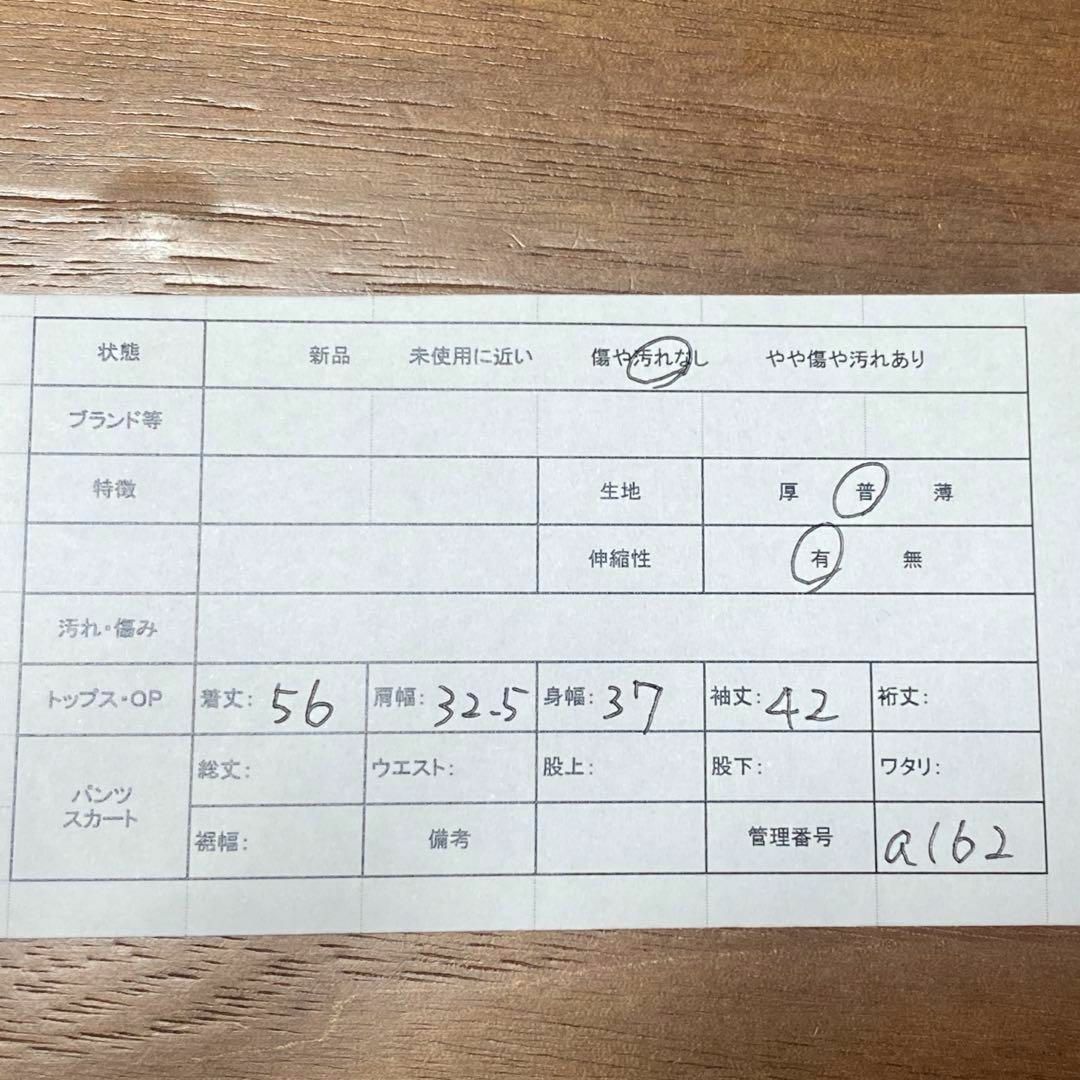 状態 新品 未使用に近い 傷や汚れなし やや傷や汚れあり
ブランド等
特徴 生地 厚 普 薄
伸縮性 有 無
汚れ・傷み
トップス・OP 着丈: 56 肩幅: 32.5 身幅: 37 袖丈: 42 裄丈:
パンツ スカート 総丈: ウエスト: 股上: 股下: ワタリ:
裾幅: 備考 管理番号 a162